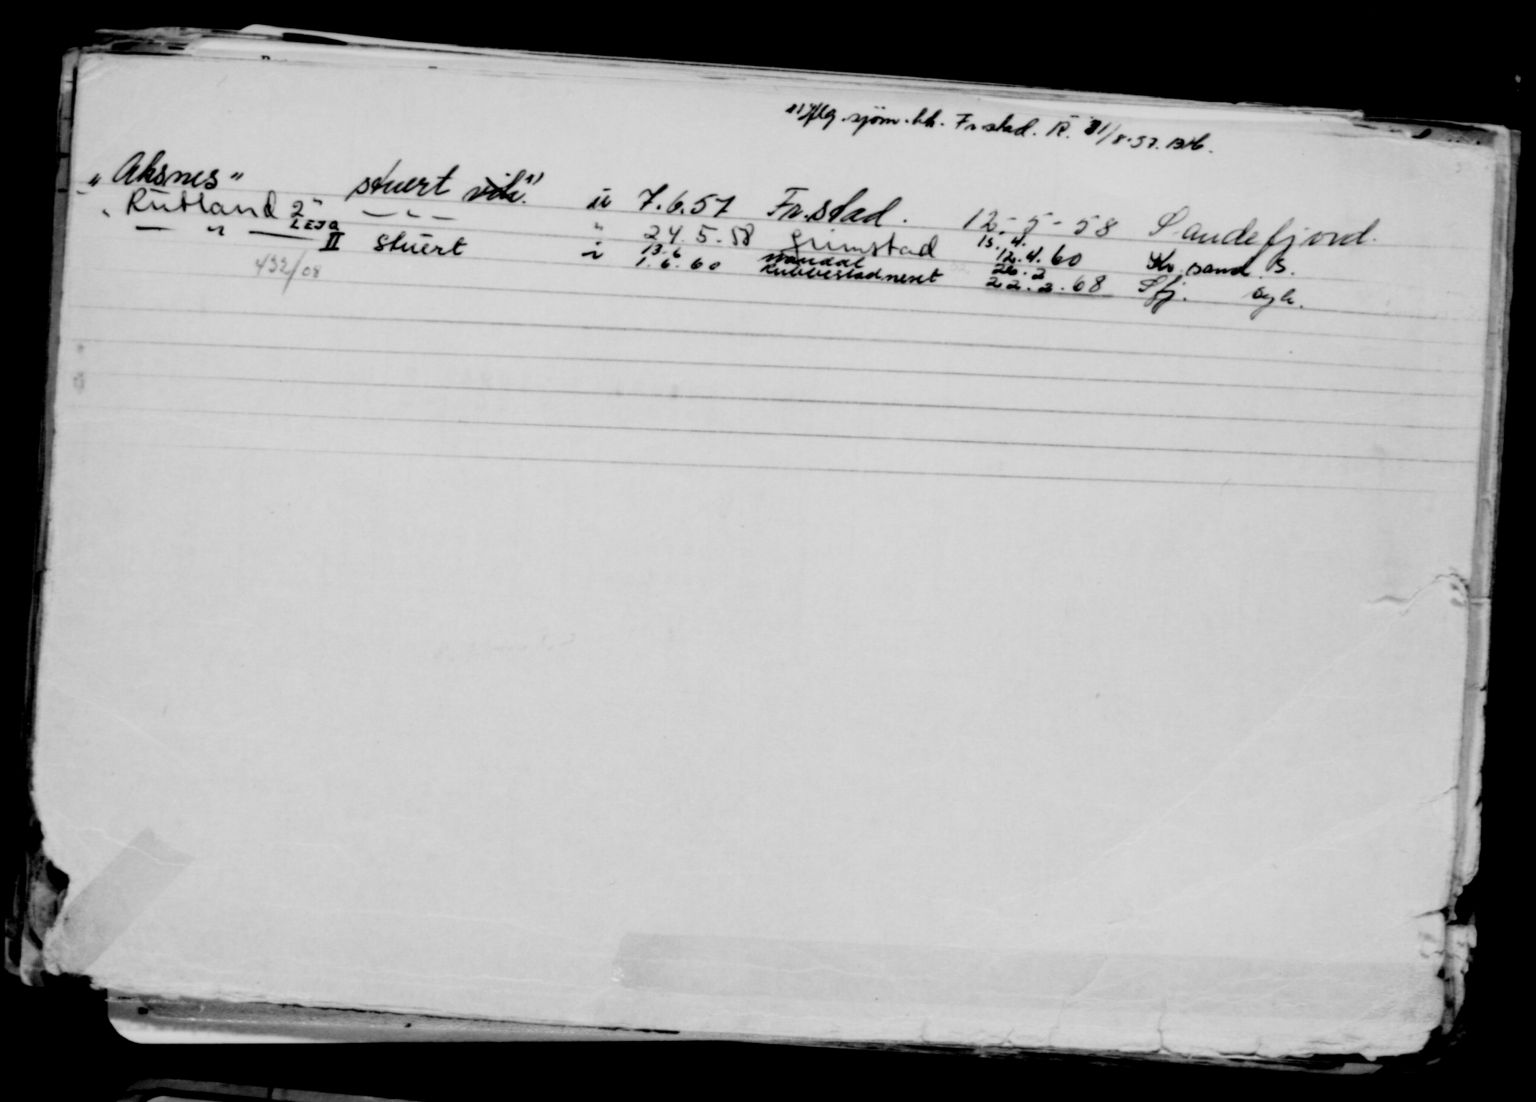 1) iflg. sjøm.bk. Fr.stad. R. 31/8-57.
"Aksnes" stuert vik. 1) u 7.6.57 Fr.stad. 12-5-58 Sandefjord.
"Rutland 2" — " — " 24.5.58 Grimstad 15.4.
LEJA 13.6 Mandal 12.4.60 Kr.sand. S.
— " — II stuert i 1.6.60 Rubbestadneset 26.2
22.2.68 Sfj. syk.
432/08